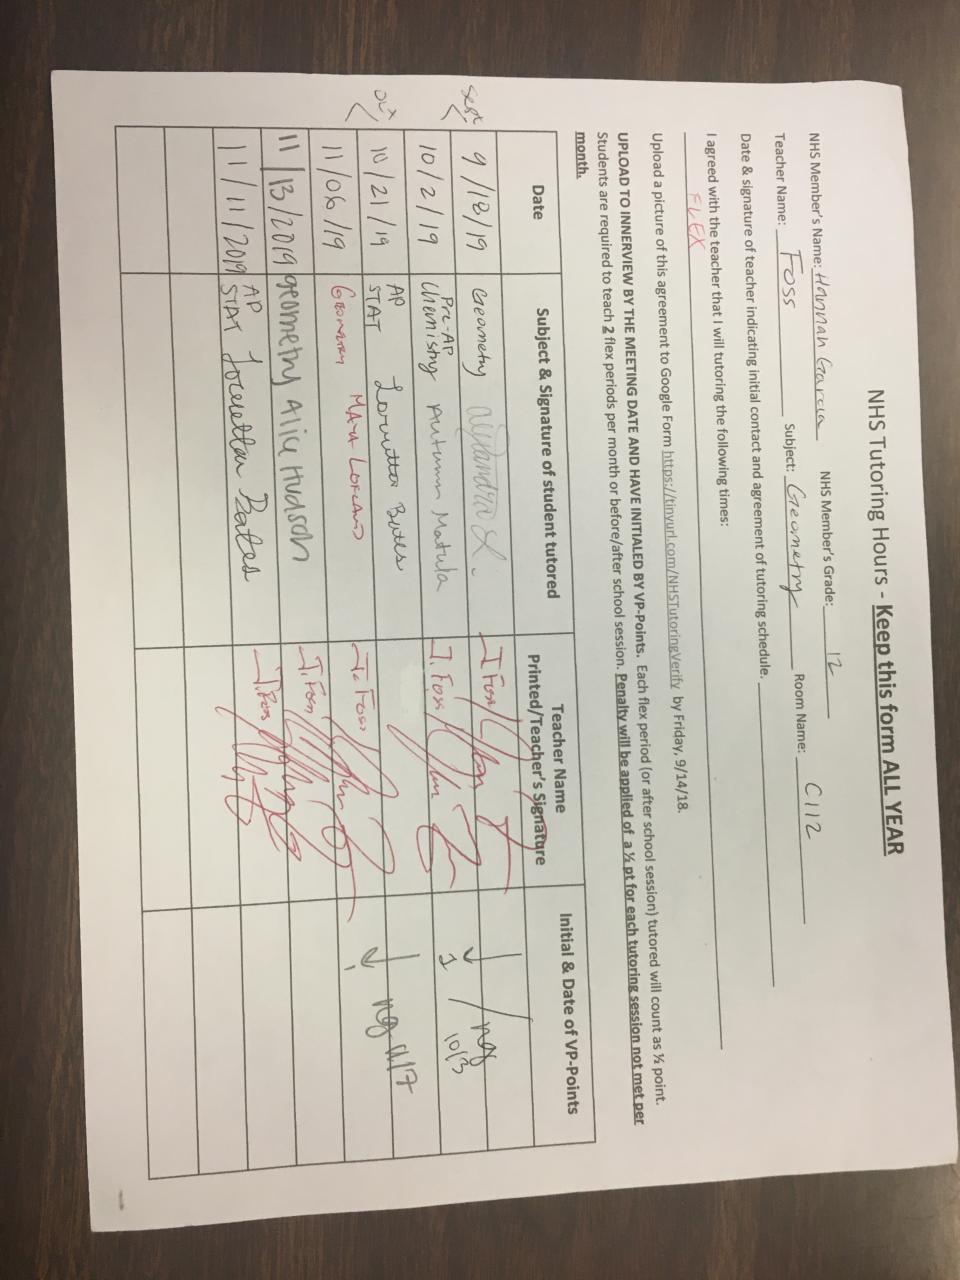 NHS Tutoring Hours - Keep this form ALL YEAR
NHS Member's Name: Hannah Garcia NHS Member's Grade: 12
Teacher Name: Foss Subject: Geometry Room Name: C112
Date & signature of teacher indicating initial contact and agreement of tutoring schedule.
I agreed with the teacher that I will tutoring the following times:
FLEX
Upload a picture of this agreement to Google Form https://tinyurl.com/NHSTutoringVerify by Friday, 9/14/18.
UPLOAD TO INNERVIEW BY THE MEETING DATE AND HAVE INITIALED BY VP-Points. Each flex period (or after school session) tutored will count as ½ point.
Students are required to teach 2 flex periods per month or before/after school session. Penalty will be applied of a ½ pt for each tutoring session not met per
month.
Date Subject & Signature of student tutored Teacher Name Printed/Teacher's Signature Initial & Date of VP-Points
Sept 9/18/19 Geometry J Foss
10/2/19 Pre-AP Chemistry Autumn Matula J. Foss 1 10/3
10/21/19 AP STAT
11/06/19 Geometry J. Foss
11/13/2019 geometry Alice Hudson J. Foss
11/11/2019 AP STAT Bates J. Foss